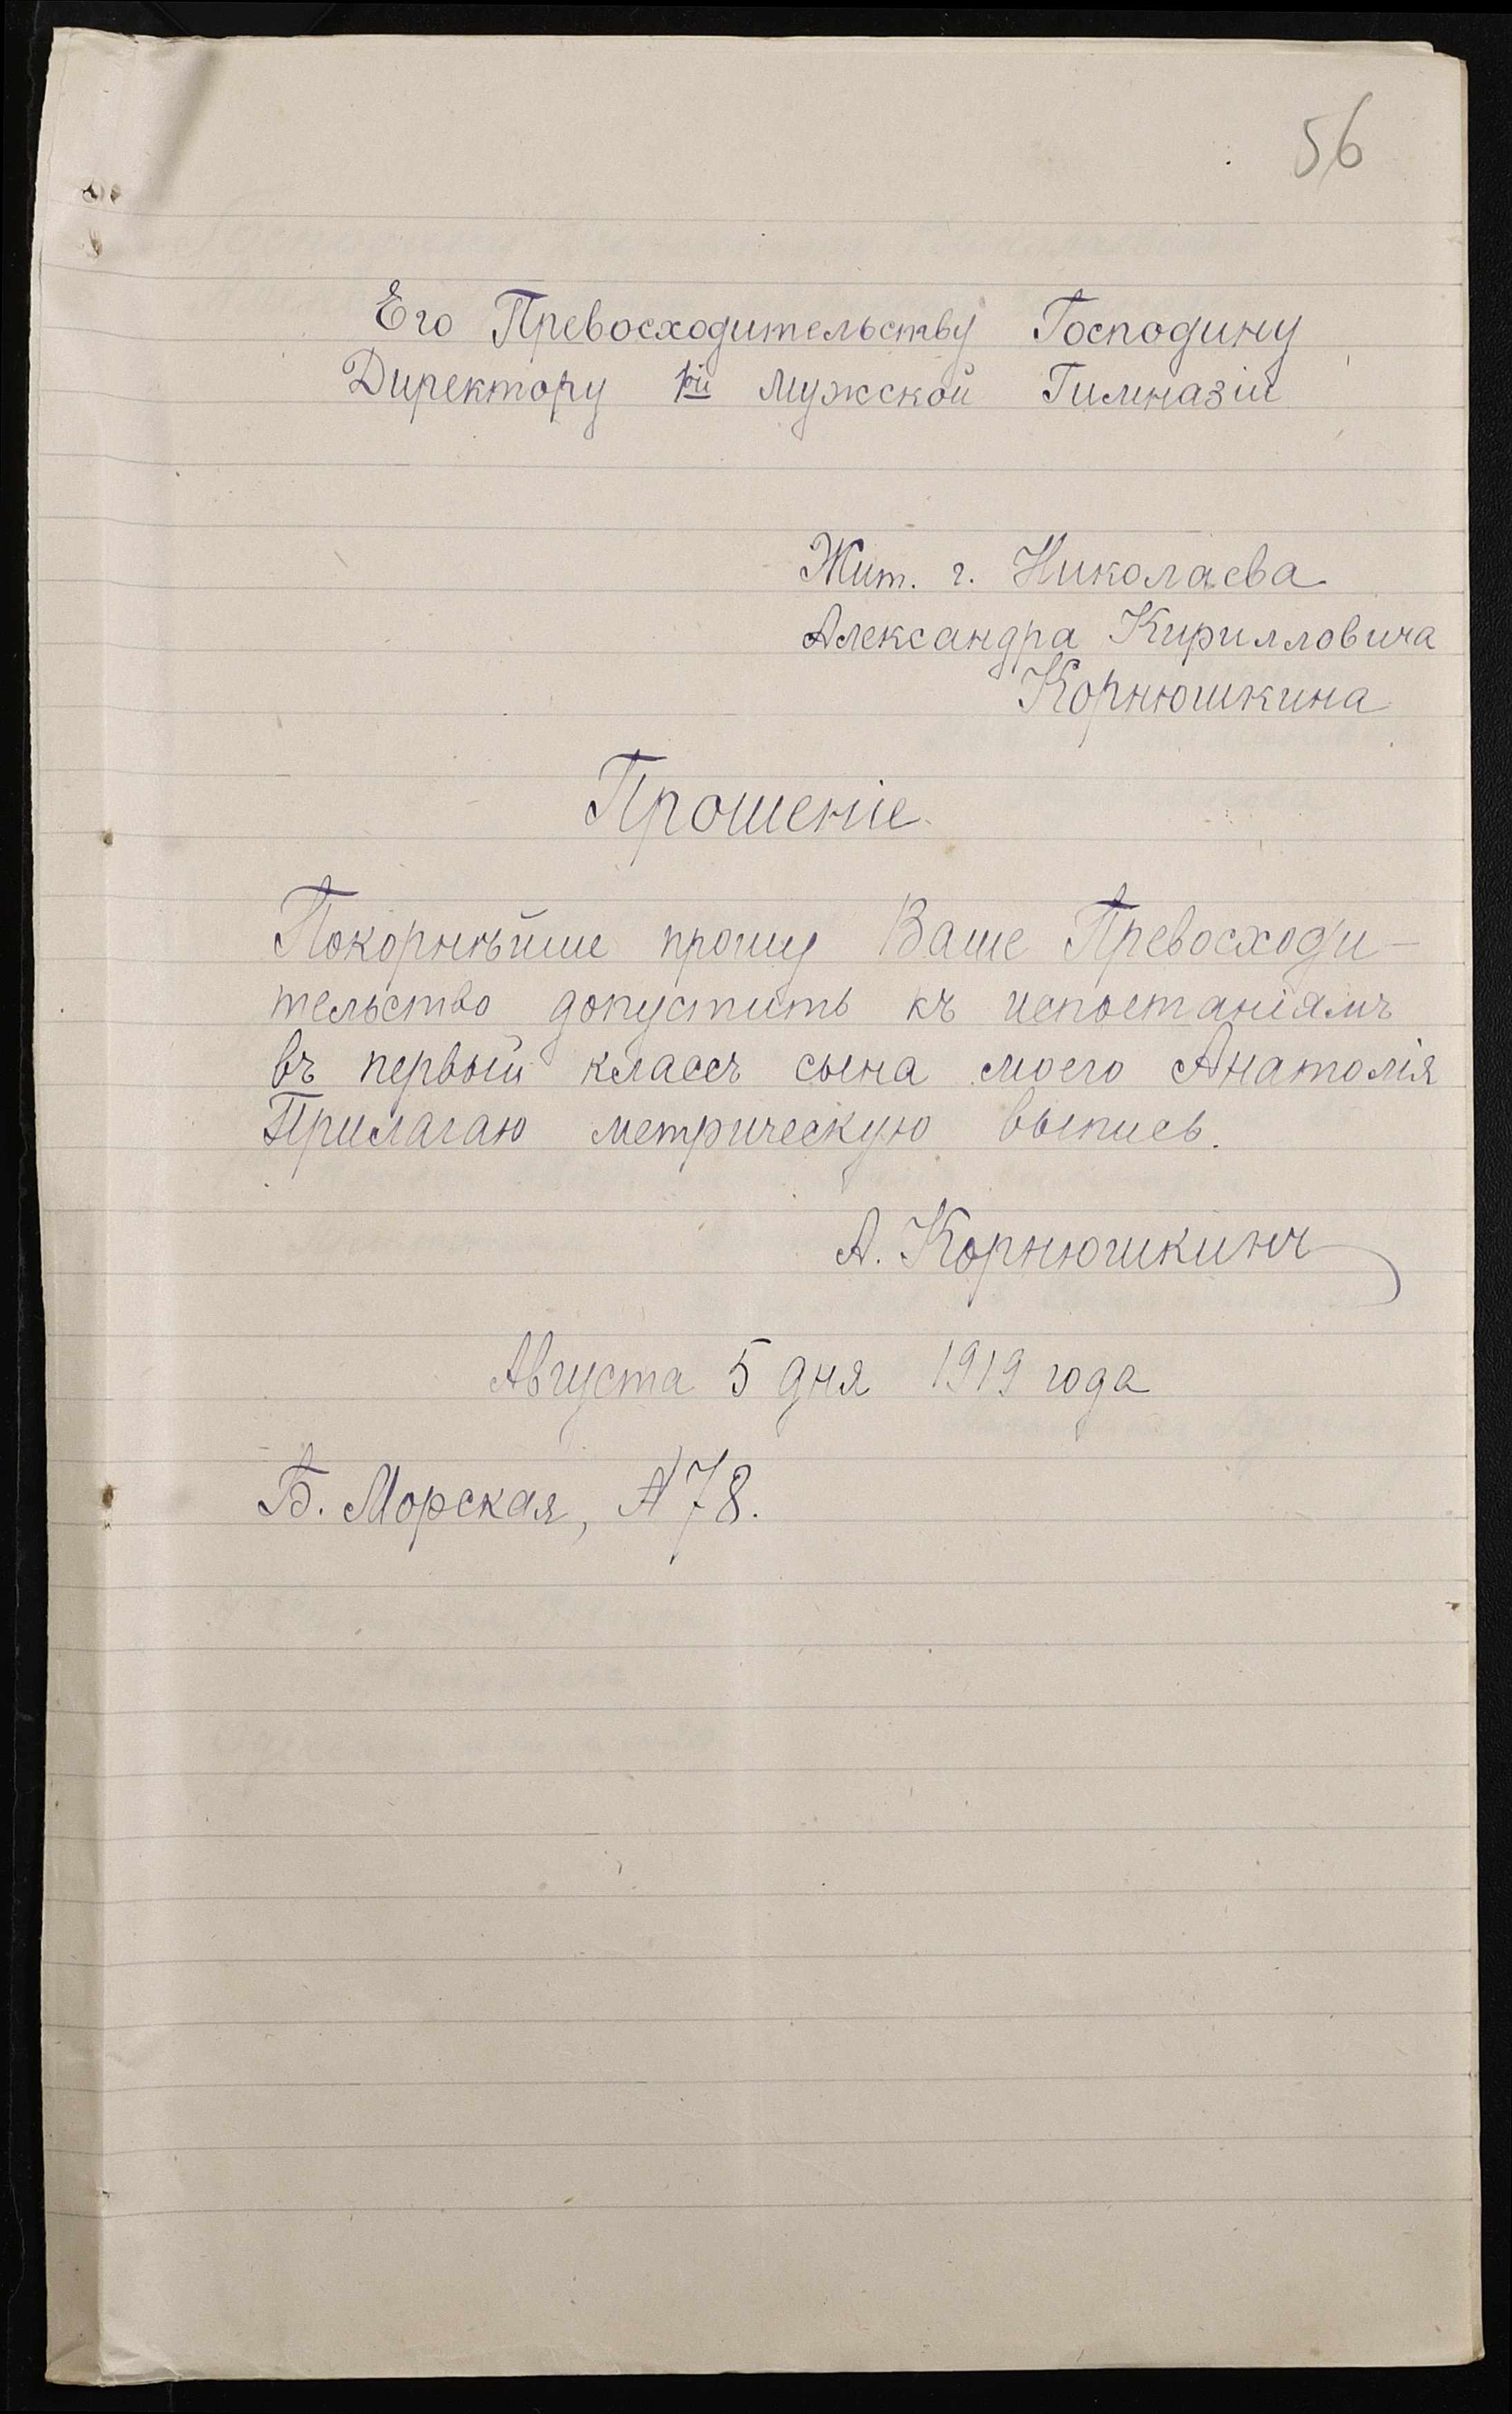 56
Его Превосходительству Господину
Директору 1ой Мужской Гимназіи
Жит. г. Николаева
Александра Кирилловича
Корнюшкина
Прошеніе.
Покорнѣйше прошу Ваше Превосходи-
тельство допустить къ испытаніямъ
въ первый классъ сына моего Анатолія
Прилагаю метрическую выпись.
А. Корнюшкинъ
Августа 5 дня 1919 года
Б. Морская, № 78.